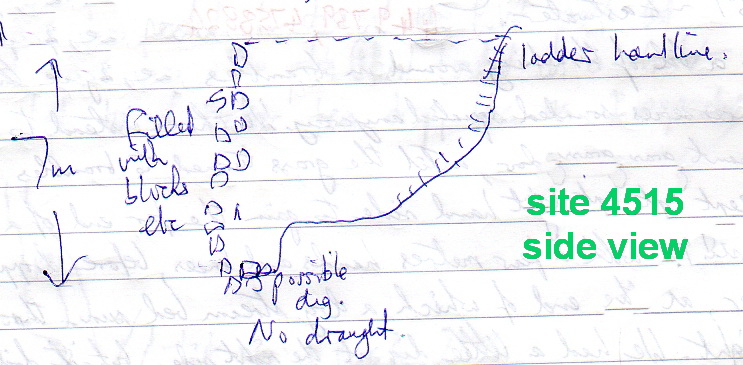 ladder handline.
7m
filled
with
blocks
etc
site 4515
side view
possible
dig.
No draught.